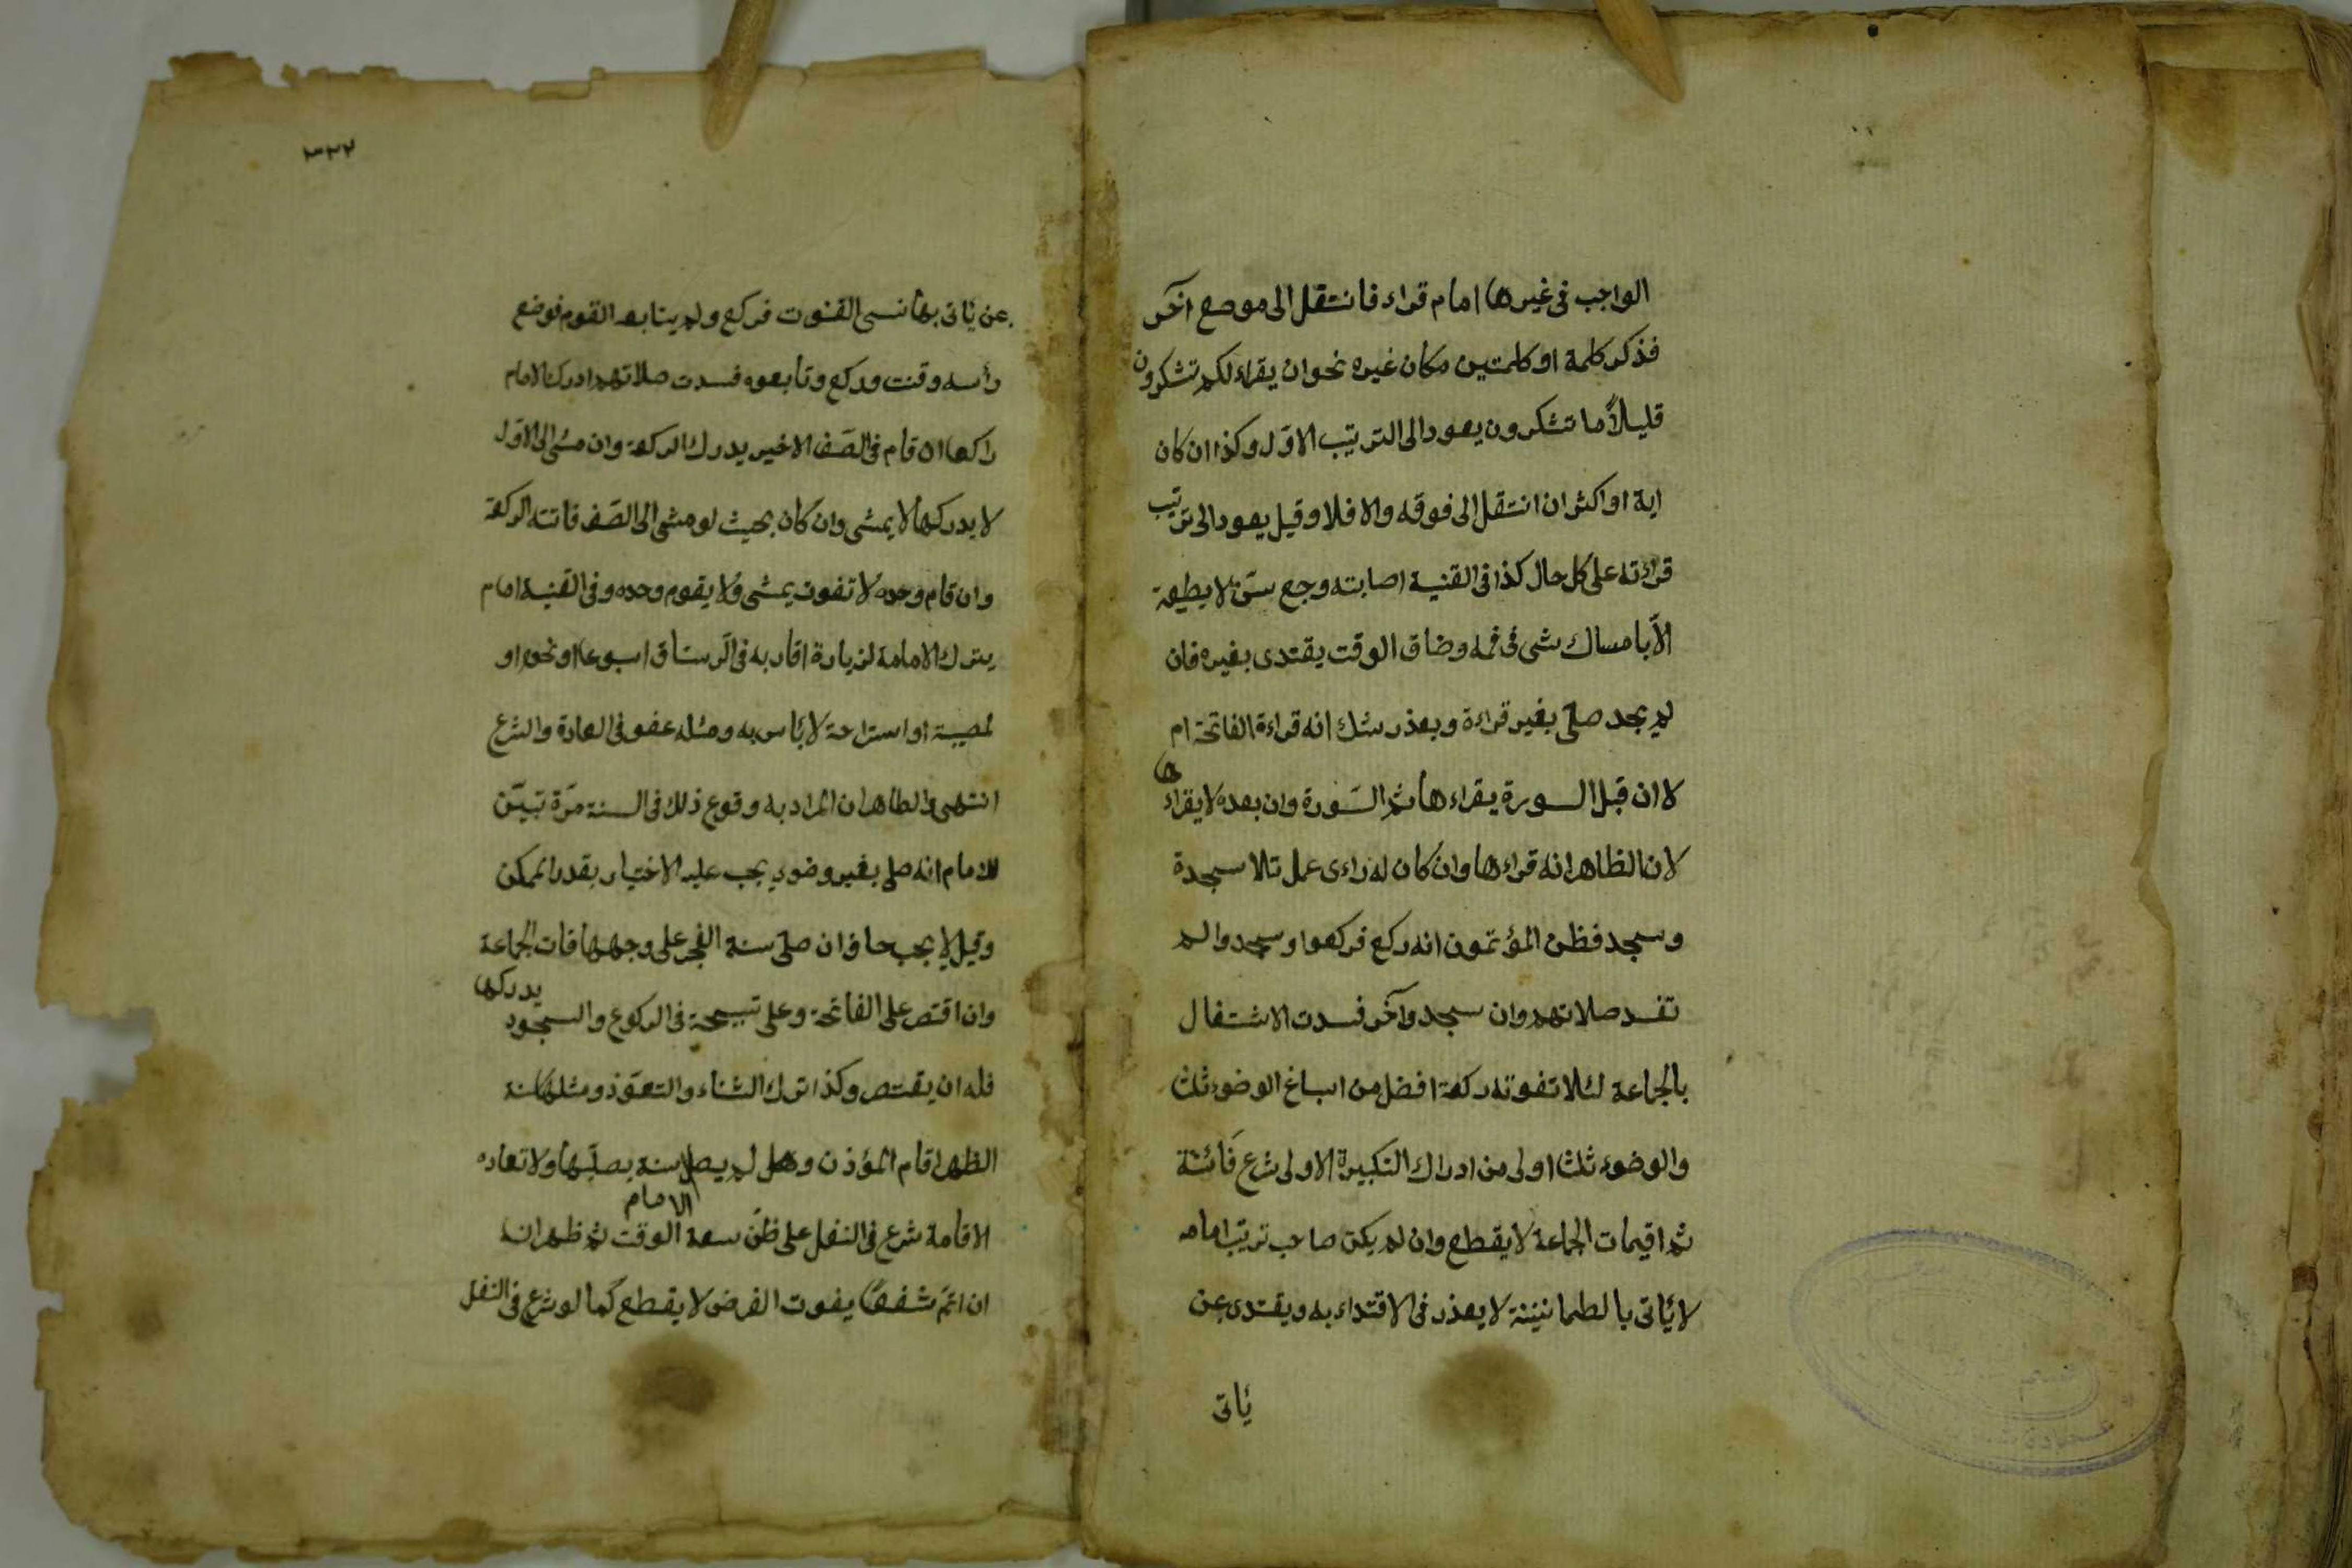 الواجب فى غيرها امام قراء فانتقل الى موضع آخر
فذكر كلمة او كلمتين مكان غيره نحو ان يقراء لكم تشكرون
قليلاً ما تشكرون يعود الى الترتيب الاوّل وكذا ان كان
اية او اكثر ان انتقل الى فوقه والا فلا وقيل يعود الى ترتيب
قراءته على كل حال كذا فى القنية اصابته وجع سنّ لا يطيعه
الاّ بامساك شى فى فمه وضاق الوقت يقتدى بغيره فان
لم يجد صلى بغير قراءة ويعذر شك انه قراءة الفاتحة ام
لا ان قبل السورة يقراءها ثم السّورة وان بعده لا يقراءها
لان الظاهر انه قراءها وان كان له راءى عمل تلا سجدة
وسجد فظن المؤتمون انه ركع فركعوا وسجدوا لم
تفسد صلاتهم وان سجدوا آخر فسدت الاشتغال
بالجماعة لئلا تفوته ركعة افضل من اسباغ الوضوء ثلث
والوضوء ثلث اولى من ادراك التكبيرة الاولى شرع فائتة
ثم اقيمات الجماعة لا يقطع وان لم يكن صاحب ترتيب امامه
لا يأتى بالطمانينة لا يعذر فى الاقتداء به ويقتدى عن
يأتى
٣٢٢
عن يأتى بها نسى القنوت فركع ولم يتابعه القوم فوضع
رأسه وقنت وركع وتابعوه فسدت صلاتهم ادرك الامام
راكعا ان قام فى الصّف الاخير يدرك الركعة وان مشى الى الاوّل
لا يدركها لا يمشى وان كان بحيث لو مشى الى الصّف فاتته الركعة
وان قام وحده لا تفوت يمشى ولا يقوم وحده وفى القنية امام
يترك الامامة لزيارة اقاربه فى الرستاق اسبوعا او نحوه او
لمصيبة او استراحة لا بأس به ومثله عفو فى العادة والشرع
انتهى والظاهر ان المراد به وقوع ذلك فى السنة مرّة تبيّن
للامام انه صلى بغير وضوء يجب عليه الاخبار بقدر الممكن
وقيل لا يجب خاف ان صلى سنة الفجر على وجهها فات الجماعة
وان اقتصر على الفاتحة وعلى تسبيحة فى الركوع والسجود يدركها
فله ان يقتصر وكذا ترك الثناء والتعوّذ ومثلها سنة
الظهر اقام المؤذن وهلى لم يصل الامام سنة يصلّيها ولا تعاده
الاقامة شرع فى النفل على ظنّ سعة الوقت ثم ظهر انه
ان اتمّ شفعًا يفوت الفرض لا يقطع كما لو شرع فى النفل